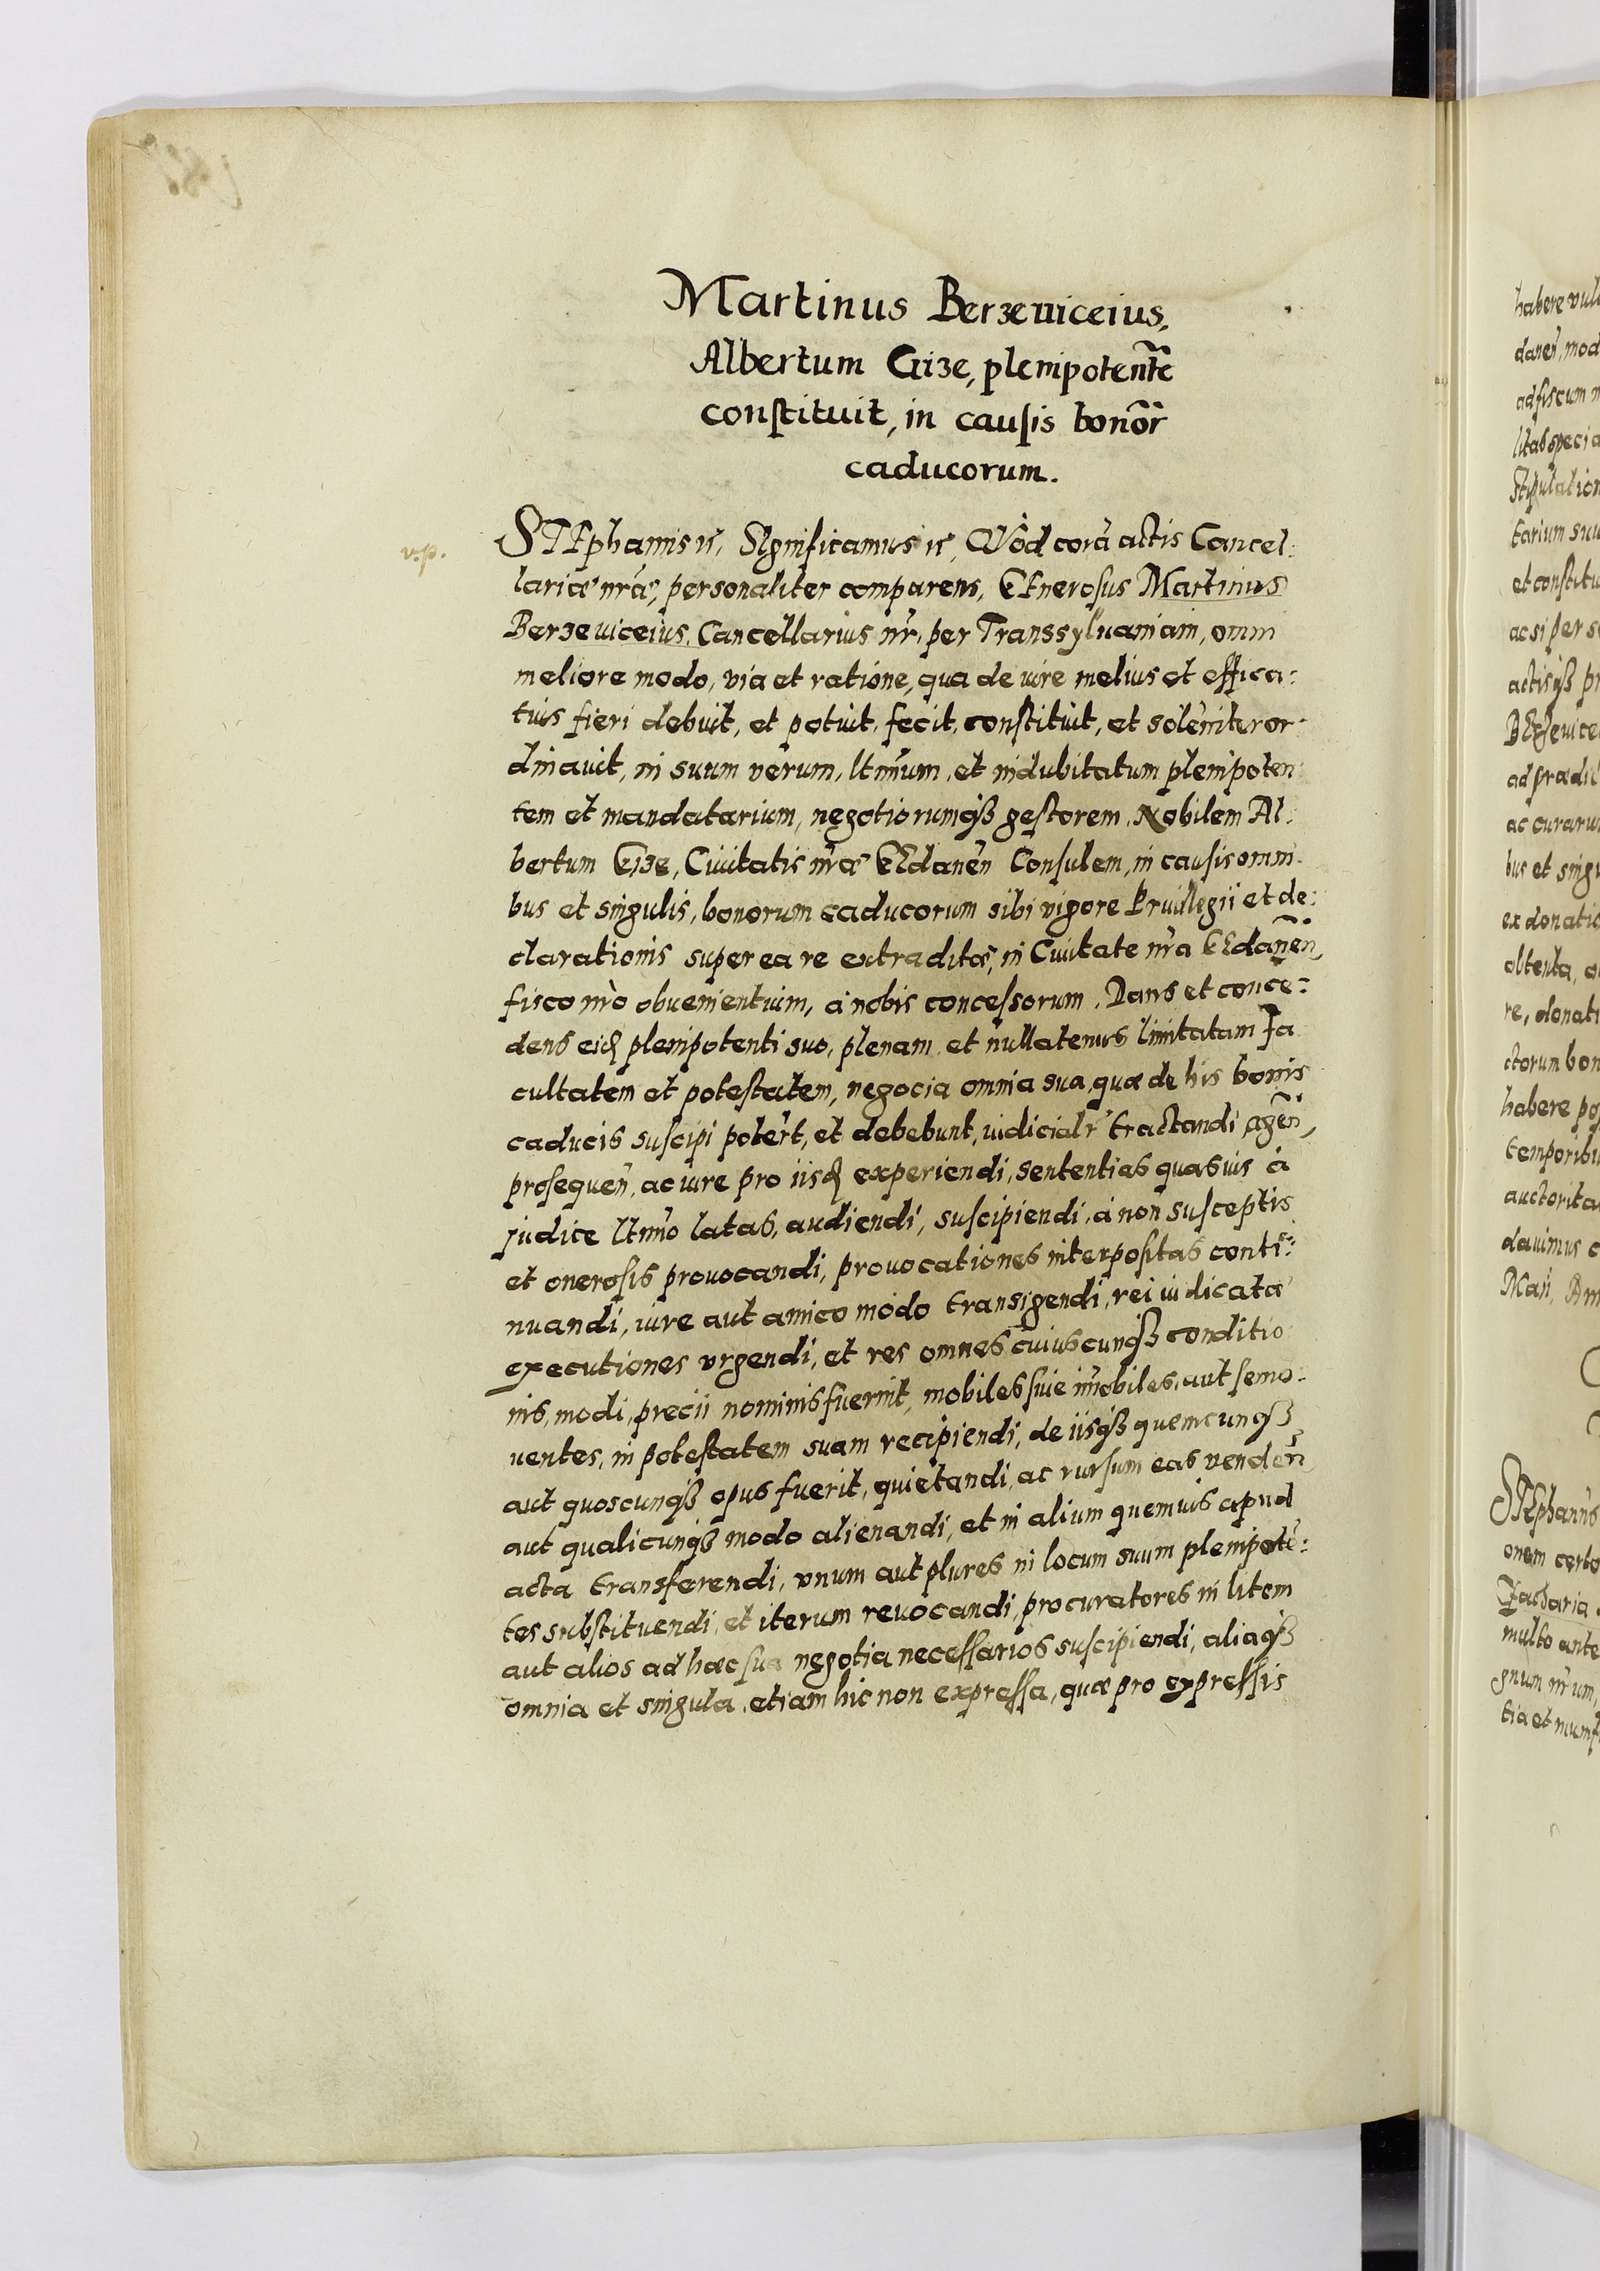 Martinus Berzeuiceius,
Albertum Gize, plenipotentẽ
constituit, in causis bonor̃
caducorum.
v.p.
STEphanus rc, SIgnificamus rc, QVòd corã actis Cancel:
lariæ nr̃æ, personaliter comparens, GEnerosus Martinus
Berzeuiceius, Cancellarius nr̃, per Transsyluaniam, omni
meliore modo, via et ratione, qua de iure melius et effica:
tius fieri debuit, et potuit, fecit, constituit, et solem̃iter or-
dinauit, in suum verum, ltm̃um, et indubitatum plenipoten:
tem et mandatarium, negotiorumqȝ gestorem, Nobilem Al:
bertum Gize, Ciuitatis nr̃æ GEdanen̄ Consulem, in causis omni-
bus et singulis, bonorum caducorum sibi vigore Priuilegii et de:
clarationis super ea re extraditæ, in Ciuitate nr̃a GEdanen̄,
fisco nr̃o obuenientium, à nobis concessorum. Dans et conce:
dens eid plenipotenti suo, plenam et nullatenus limitatam Fa
cultatem et potestatem, negocia omnia sua, quæ de his bonis
caducis suscipi poter̃t, et debebunt, iudicialr̃ tractandi agen̄,
prosequen̄, ac iure pro iisd experiendi, sententias quasuis à
Judice ltm̃o latas, audiendi, suscipiendi, à non susceptis
et onerosis prouocandi, prouocationes interpositas conti:
nuandi, iure aut amico modo transigendi, rei iudicatæ
executiones vrgendi, et res omnes cuiuscunqȝ conditio
nis, modi, precii nominis fuerint, mobiles siue im̃obiles, aut semo:
uentes, in potestatem suam recipiendi, de iisqȝ quemcunqȝ
aut quoscunqȝ opus fuerit, quietandi, ac rursum eas venden̄
aut qualicunqȝ modo alienandi, et in alium quemuis apud
acta transferendi, vnum aut plures in locum suum plenipotẽ:
tes substituendi, et iterum reuocandi, procuratores in litem
aut alios ad hæc sua negotia necessarios suscipiendi, aliaqȝ
omnia et singula, etiam hic non expressa, quæ pro expressis